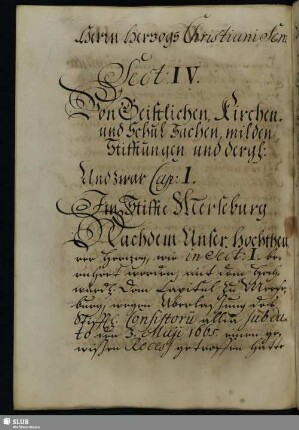 Herrn Herzogs Christiani Sen:
Sect: IV.
Von Geistlichen, Kirchen,
und Schul Sachen, milden
Stifftungen und dergl:
Und zwar Cap: I.
Im Stiffte Merseburg
Nachdem Unser Hochtheu
rer Herzog, wie in Sect: I. be
rühret worden, mit dem Hoch
würd: Dom Capitul zu Merse
burg, wegen Überlaßung des
Stiffts Consistorii allda sub da
to den 3. Maji 1665 einen ge
wißen Recess getroffen hatte
SLUB